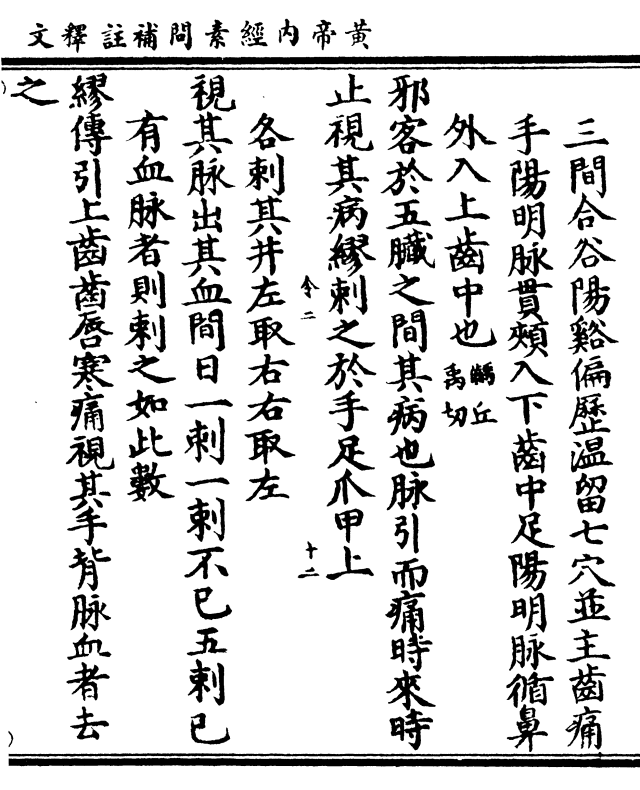 黃帝內經素問補註釋文
三間合谷陽谿偏歷溫留七穴並主齒痛
手陽明脉貫頰入下齒中足陽明脉循鼻
外入上齒中也齲丘禹切
邪客於五臟之間其病也脉引而痛時來時
止視其病繆刺之於手足爪甲上
各刺其井左取右右取左
令二
十二
視其脉出其血間日一刺一刺不已五刺已
有血脉者則刺之如此數
繆傳引上齒齒唇寒痛視其手背脉血者去
之